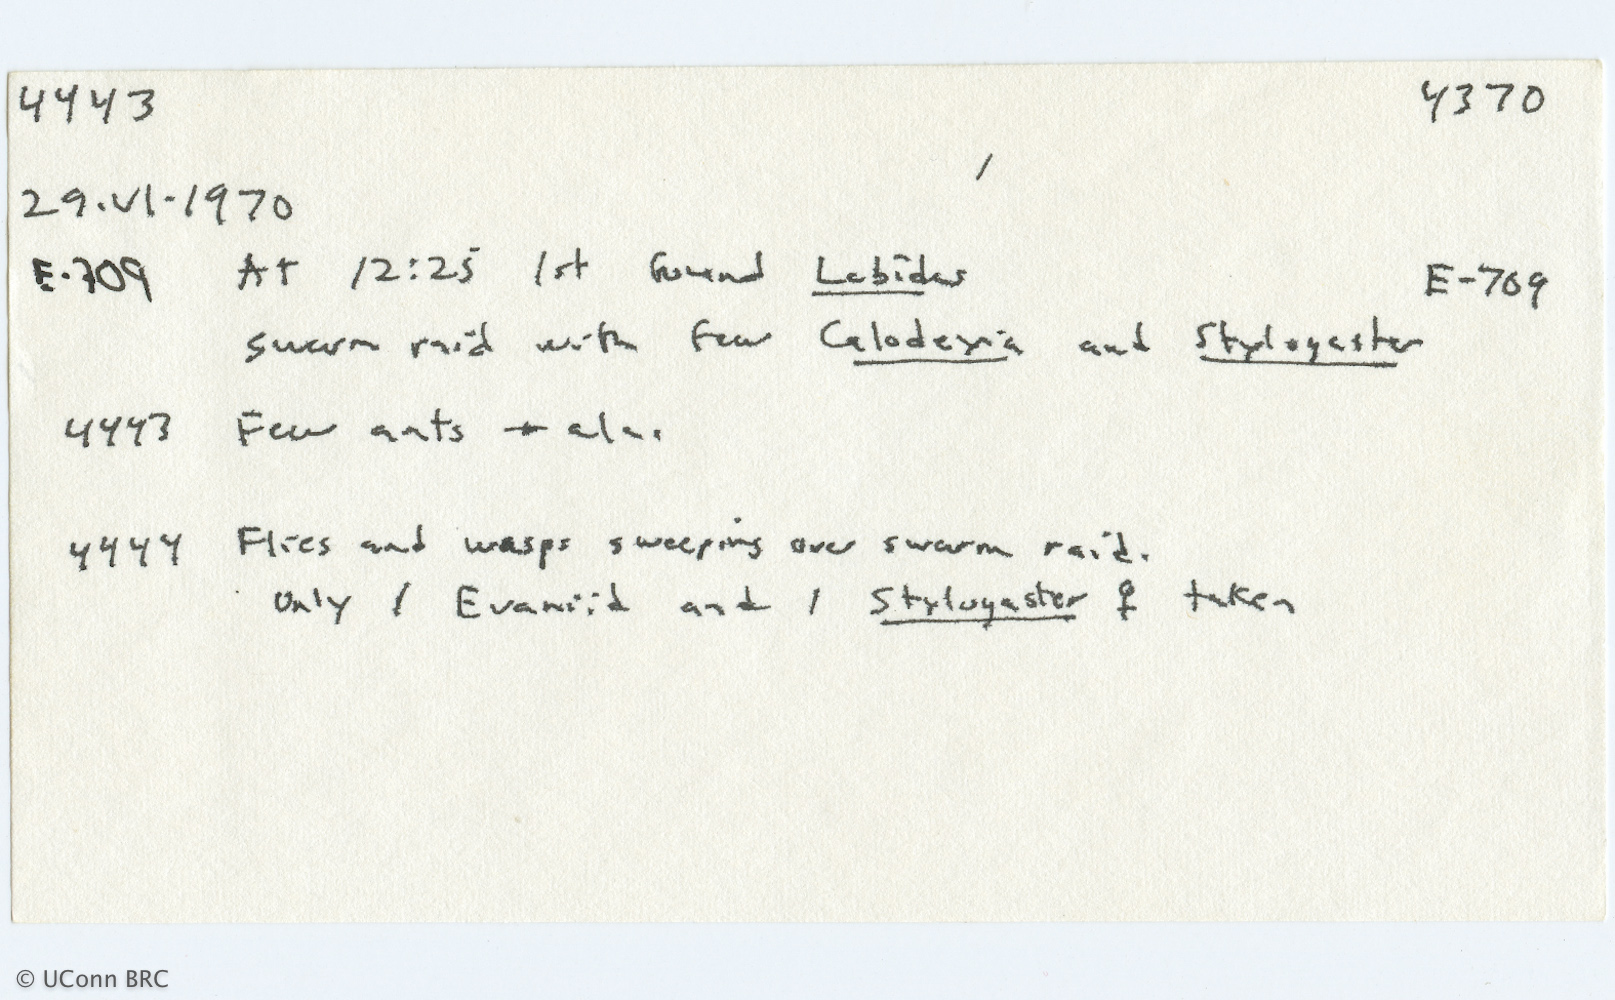 4443 4370
29.VI.1970
E-709 At 12:25 1st found Labidus E-709
swarm raid with few Calodexia and Stylogaster
4443 Few ants → alc.
4444 Flies and wasps sweeping over swarm raid.
Only 1 Evaniid and 1 Stylogaster ♀ taken
© UConn BRC